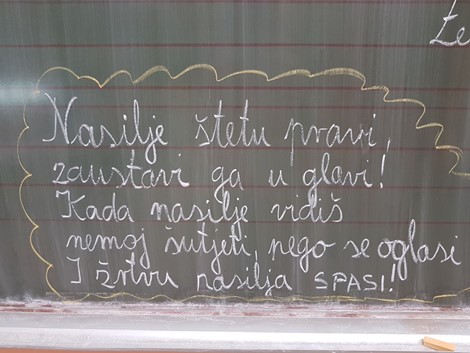 Nasilje štetu pravi,
zaustavi ga u glavi!
Kada nasilje vidiš
nemoj šutjeti, nego se oglasi
I žrtvu nasilja SPASI!